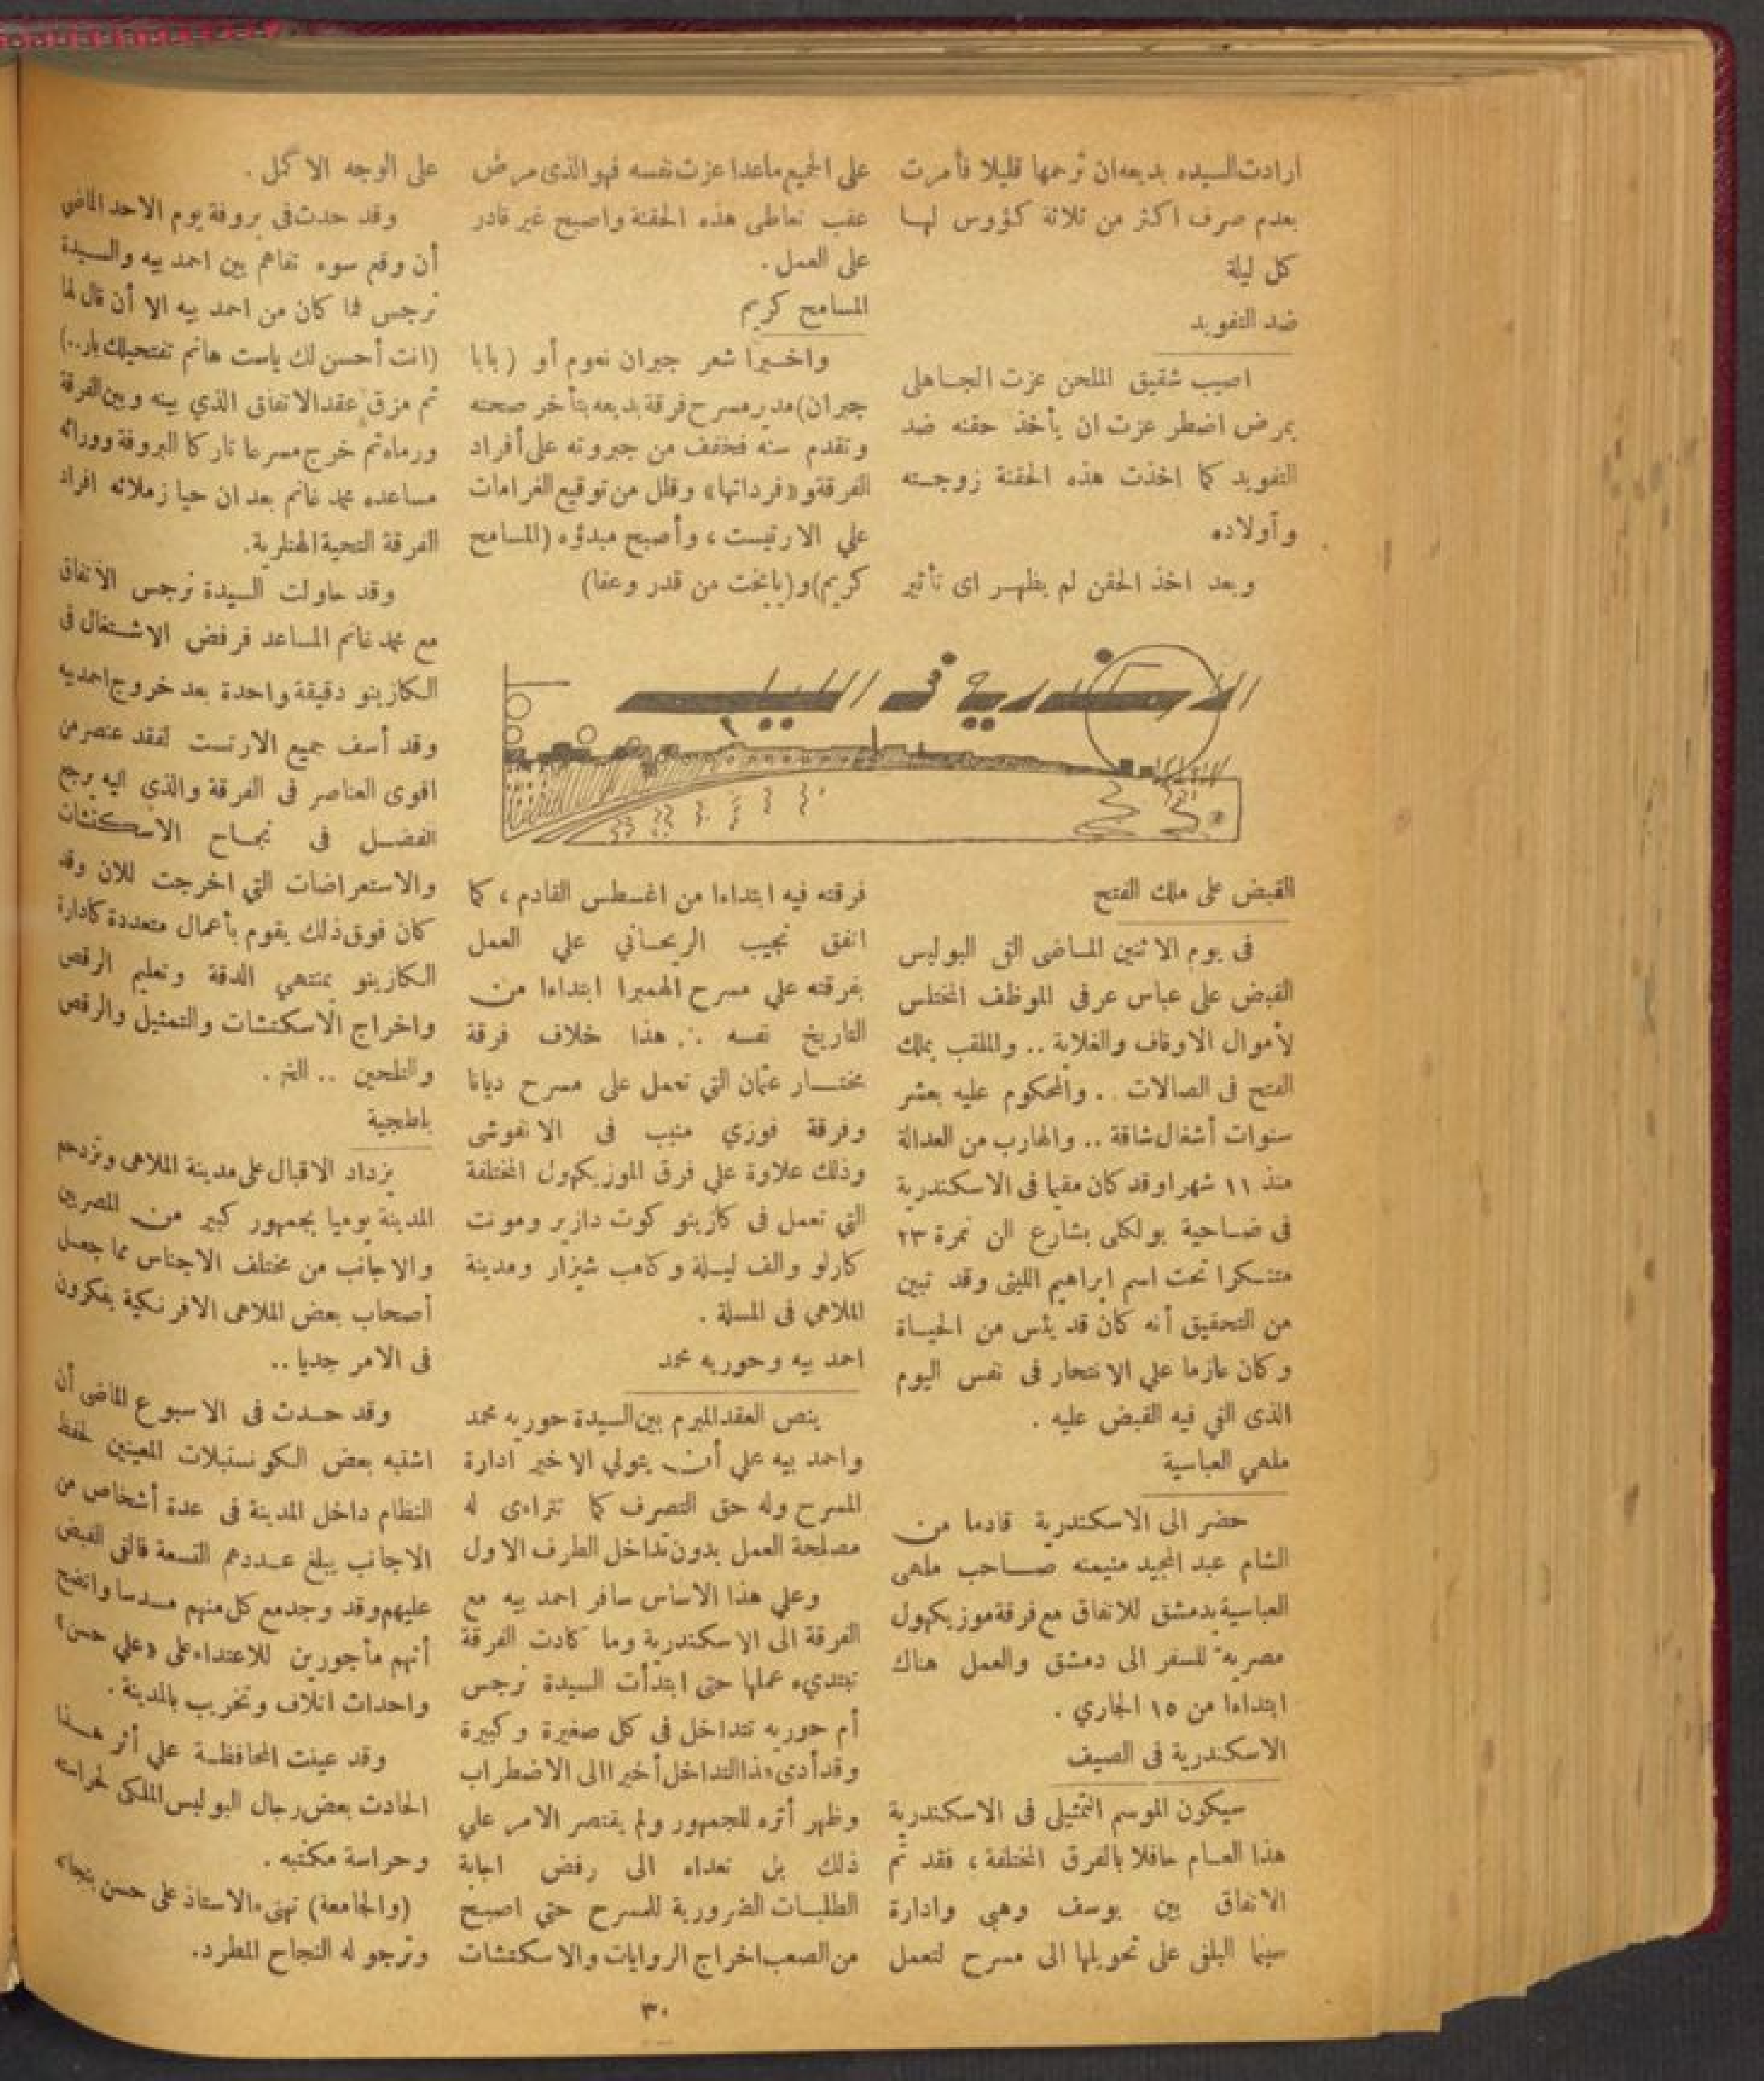 ارادت السيده بديعه ان ترحمها قليلا فأمرت
بعدم صرف اكثر من ثلاثة كؤوس لها
كل ليلة
ضد التفويد
اصيب شقيق الملحن عزت الجاهلى
بمرض اضطر عزت ان يأخذ حقنه ضد
التفويد كما اخذت هذه الحقنة زوجته
وأولاده
وبعد اخذ الحقن لم يظهر اى تأثير
على الجميع ماعدا عزت نفسه فهو الذى مرض
عقب تعاطى هذه الحقنة واصبح غير قادر
على العمل .
المسامح كريم
واخيرا شعر جبران نعوم أو ( بابا
جبران ) مدير مسرح فرقة بديعه بتأخر صحته
وتقدم سنه فخفف من جبروته على أفراد
الفرقة و « فرداتها » وقلل من توقيع الغرامات
علي الارتيست ، وأصبح مبدؤه ( المسامح
كريم ) و ( يابخت من قدر وعفا )
الاسكندرية فى الليل
القبض على ملك الفتح
فى يوم الاثنين الماضى القى البوليس
القبض على عباس عرفى الموظف المختلس
لأموال الاوقاف والغلابة .. والملقب بملك
الفتح فى الصالات .. والمحكوم عليه بعشر
سنوات أشغال شاقة .. والهارب من العدالة
منذ ١١ شهرا وقد كان مقيما فى الاسكندرية
فى ضاحية بولكلى بشارع الن نمرة ٢٣
متنكرا تحت اسم ابراهيم الليثى وقد تبين
من التحقيق أنه كان قد يئس من الحياة
وكان عازما علي الانتحار فى نفس اليوم
الذى القي فيه القبض عليه .
ملهي العباسية
حضر الى الاسكندرية قادما من
الشام عبد المجيد منيمنه صاحب ملهى
العباسية بدمشق للاتفاق مع فرقة موزيكهول
مصرية للسفر الى دمشق والعمل هناك
ابتداءا من ١٥ الجاري .
الاسكندرية فى الصيف
سيكون الموسم التمثيلى فى الاسكندرية
هذا العام حافلا بالفرق المختلفة ، فقد تم
الاتفاق بين يوسف وهبي وادارة
سينما البلفى على تحويلها الى مسرح لتعمل
فرقته فيه ابتداءا من اغسطس القادم ، كما
اتفق نجيب الريحاني علي العمل
بفرقته علي مسرح الهمبرا ابتداءا من
التاريخ نفسه .. هذا خلاف فرقة
مختار عثمان التي تعمل على مسرح ديانا
وفرقة فوزي منيب فى الانفوشى
وذلك علاوة علي فرق الموزيكهول المختلفة
التي تعمل فى كازينو كوت دازير ومونت
كارلو والف ليلة وكامب شيزار ومدينة
الملاهي فى المسلة .
احمد بيه وحوريه محمد
ينص العقد المبرم بين السيدة حوريه محمد
واحمد بيه علي أن يتولي الاخير ادارة
المسرح وله حق التصرف كما تتراءى له
مصلحة العمل بدون تداخل الطرف الاول
وعلي هذا الاساس سافر احمد بيه مع
الفرقة الى الاسكندرية وما كادت الفرقة
تبتدىء عملها حتى ابتدأت السيدة نرجس
أم حوريه تتداخل فى كل صغيرة وكبيرة
وقد أدى هذا التداخل أخيرا الى الاضطراب
وظهر أثره للجمهور ولم يقتصر الامر علي
ذلك بل تعداه الى رفض اجابة
الطلبات الضرورية للمسرح حتي اصبح
من الصعب اخراج الروايات والاسكتشات
على الوجه الاكمل .
وقد حدث فى بروفة يوم الاحد الماضى
أن وقع سوء تفاهم بين احمد بيه والسيدة
نرجس فما كان من احمد بيه الا أن قال لها
( انت أحسن لك ياست هانم تفتحيلك بار .. )
ثم مزق عقد الاتفاق الذي بينه وبين الفرقة
ورماه ثم خرج مسرعا تاركا البروفة ووراءه
مساعده محمد غانم بعد ان حيا زملائه افراد
الفرقة التحية الهتلرية .
وقد حاولت السيدة نرجس الاتفاق
مع محمد غانم المساعد فرفض الاشتغال فى
الكازينو دقيقة واحدة بعد خروج احمد بيه
وقد أسف جميع الارتست لفقد عنصر من
اقوى العناصر فى الفرقة والذي اليه يرجع
الفضل فى نجاح الاسكتشات
والاستعراضات التي اخرجت للان وقد
كان فوق ذلك يقوم بأعمال متعددة كادارة
الكازينو بمنتهي الدقة وتعليم الرقص
واخراج الاسكتشات والتمثيل والرقص
والتلحين .. الخ .
باطجية
يزداد الاقبال على مدينة الملاهى وتزدحم
المدينة يوميا بجمهور كبير من المصريين
والاجانب من مختلف الاجناس مما جعل
أصحاب بعض الملاهى الافرنكية يفكرون
فى الامر جديا ..
وقد حدث فى الاسبوع الماضى أن
اشتبه بعض الكونستبلات المعينين لحفظ
النظام داخل المدينة فى عدة أشخاص من
الاجانب يبلغ عددهم التسعة فالقى القبض
عليهم وقد وجد مع كل منهم مسدسا واتضح
أنهم مأجورين للاعتداء على « علي حسن »
واحداث اتلاف وتخريب بالمدينة .
وقد عينت المحافظة علي أثر هذا
الحادث بعض رجال البوليس الملكى لحراسته
وحراسة مكتبه .
( والجامعة ) تهنىء الاستاذ على حسن بنجاته
وترجو له النجاح المطرد .
٣٠